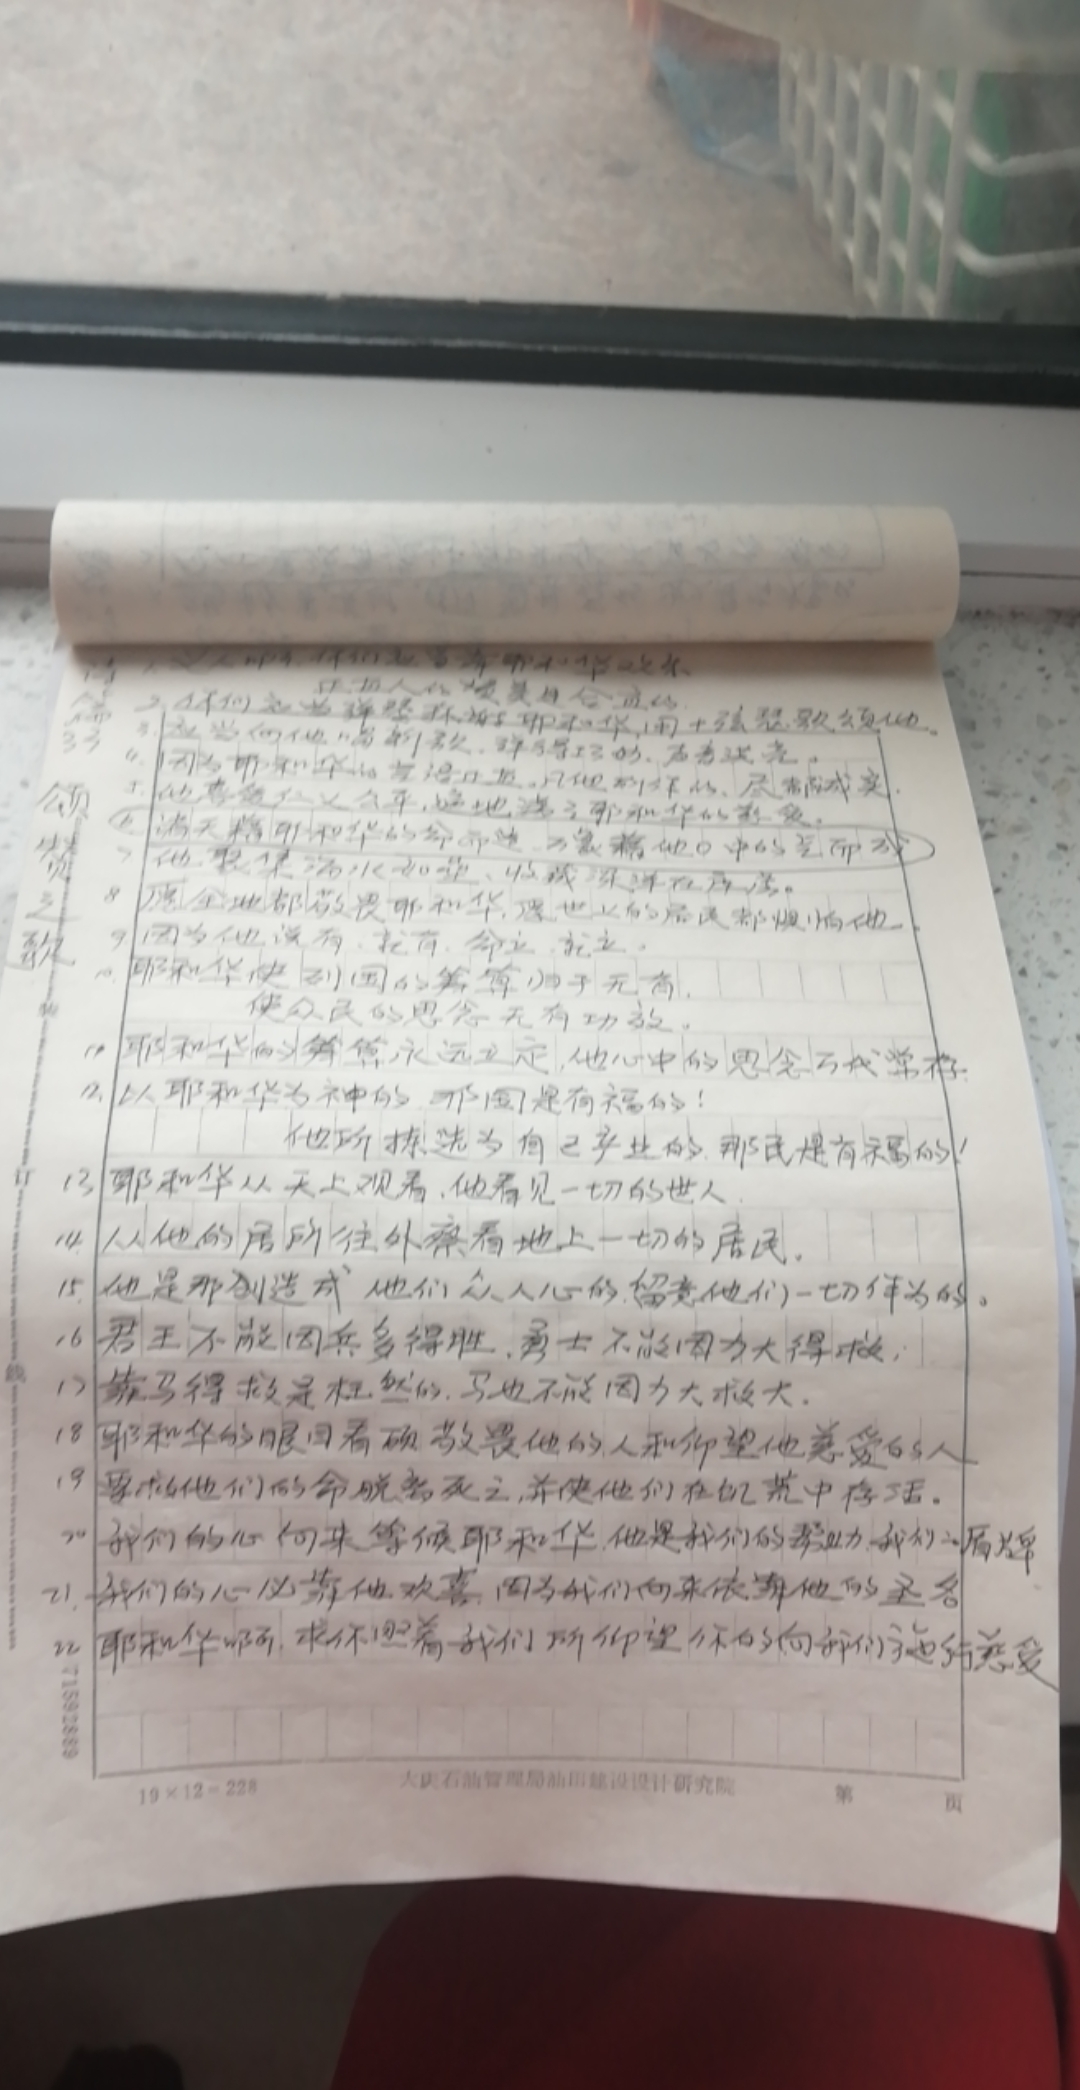 诗篇33 颂赞之歌
1 义人哪,你们应当靠耶和华欢乐
正直人的赞美是合宜的.
2. 你们应当弹琴称谢耶和华,用十弦瑟歌颂他.
3. 应当向他唱新歌.弹得巧妙.声音洪亮.
4. 因为耶和华的言语正直.凡他所作的.尽都诚实.
5. 他喜爱仁义公平.遍地满了耶和华的慈爱.
6 满天藉耶和华的命而造.万象藉他口中的气而成
7 他聚集海水如垒、收藏深洋在库房。
8 愿全地都敬畏耶和华.愿世上的居民都惧怕他.
9 因为他说有.就有.命立.就立.
10. 耶和华使列国的筹算归于无有.
使众民的思念无有功效.
11 耶和华的筹算永远立定,他心中的思念万代常存.
12. 以耶和华为神的.那国是有福的!
他所拣选为自己产业的.那民是有福的!
13 耶和华从天上观看.他看见一切的世人.
14. 从他的居所往外察看地上一切的居民.
15. 他是那创造成他们众人心的.留意他们一切作为的.
16 君王不能因兵多得胜.勇士不能因力大得救.
17 靠马得救是枉然的.马也不能因力大救人.
18 耶和华的眼目看顾敬畏他的人和仰望他慈爱的人
19 要救他们的命脱离死亡,并使他们在饥荒中存活.
20 我们的心向来等候耶和华.他是我们的帮助.我们的盾牌
21. 我们的心必靠他欢喜.因为我们向来依靠他的圣名
22 耶和华啊.求你照着我们所仰望你的向我们施行慈爱
装
订
线
71592889
19×12-228 大庆石油管理局油田建设设计研究院 第 页